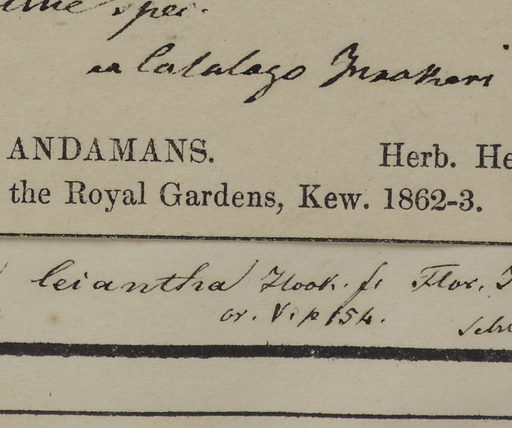 spec.
Catalago
ANDAMANS. Herb. He
the Royal Gardens, Kew. 1862-3.
leiantha Hook. f. Flor.
or. V. p 154.